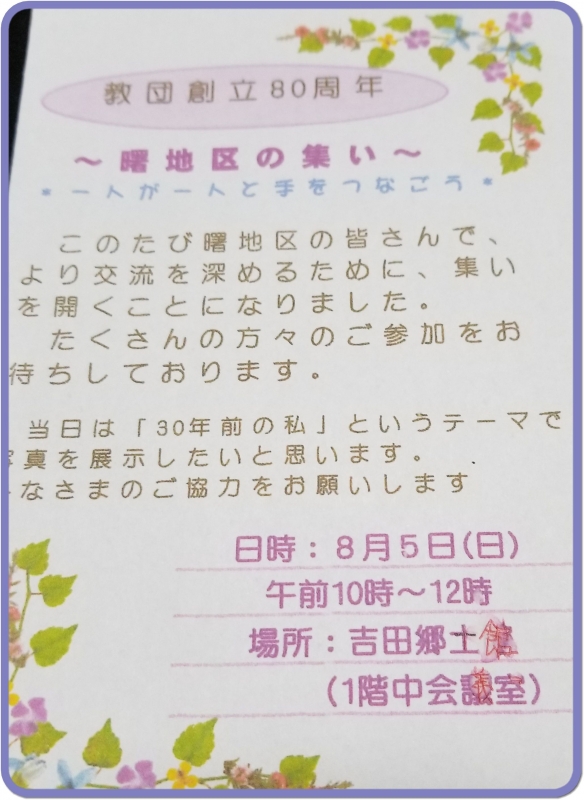 教団創立80周年
～曙地区の集い～
*一人が一人と手をつなごう*
このたび曙地区の皆さんで、
より交流を深めるために、集い
を開くことになりました。
たくさんの方々のご参加をお
待ちしております。
当日は「30年前の私」というテーマで
写真を展示したいと思います。
みなさまのご協力をお願いします
日時：8月5日(日)
午前10時～12時
場所：吉田郷土館
(1階中会議室)